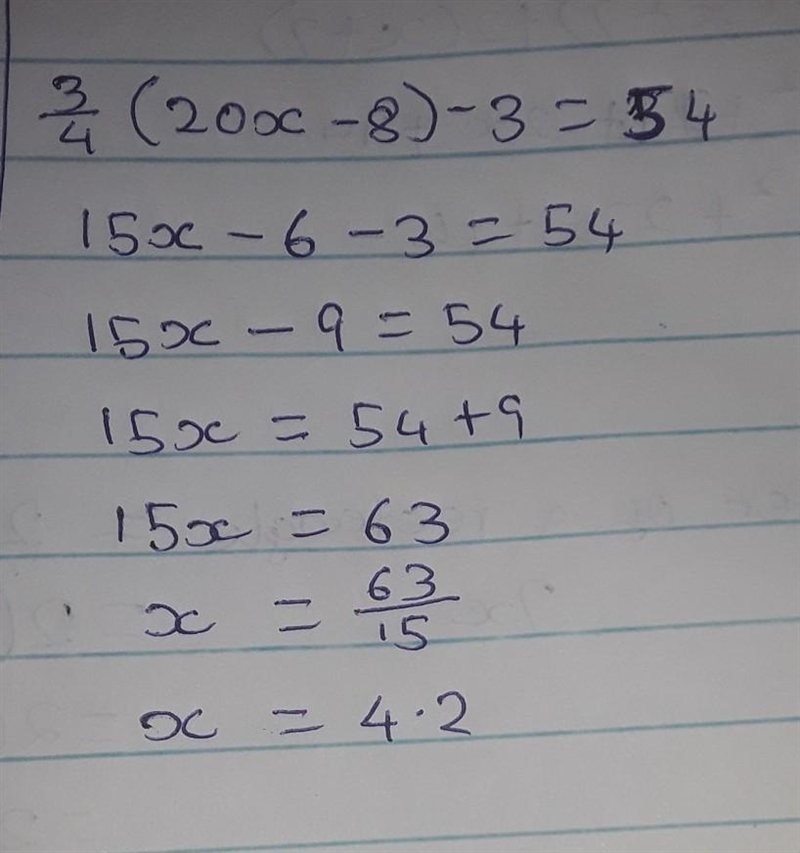 3/4 (20x - 8) - 3 = 54
15x - 6 - 3 = 54
15x - 9 = 54
15x = 54 + 9
15x = 63
x = 63/15
x = 4·2